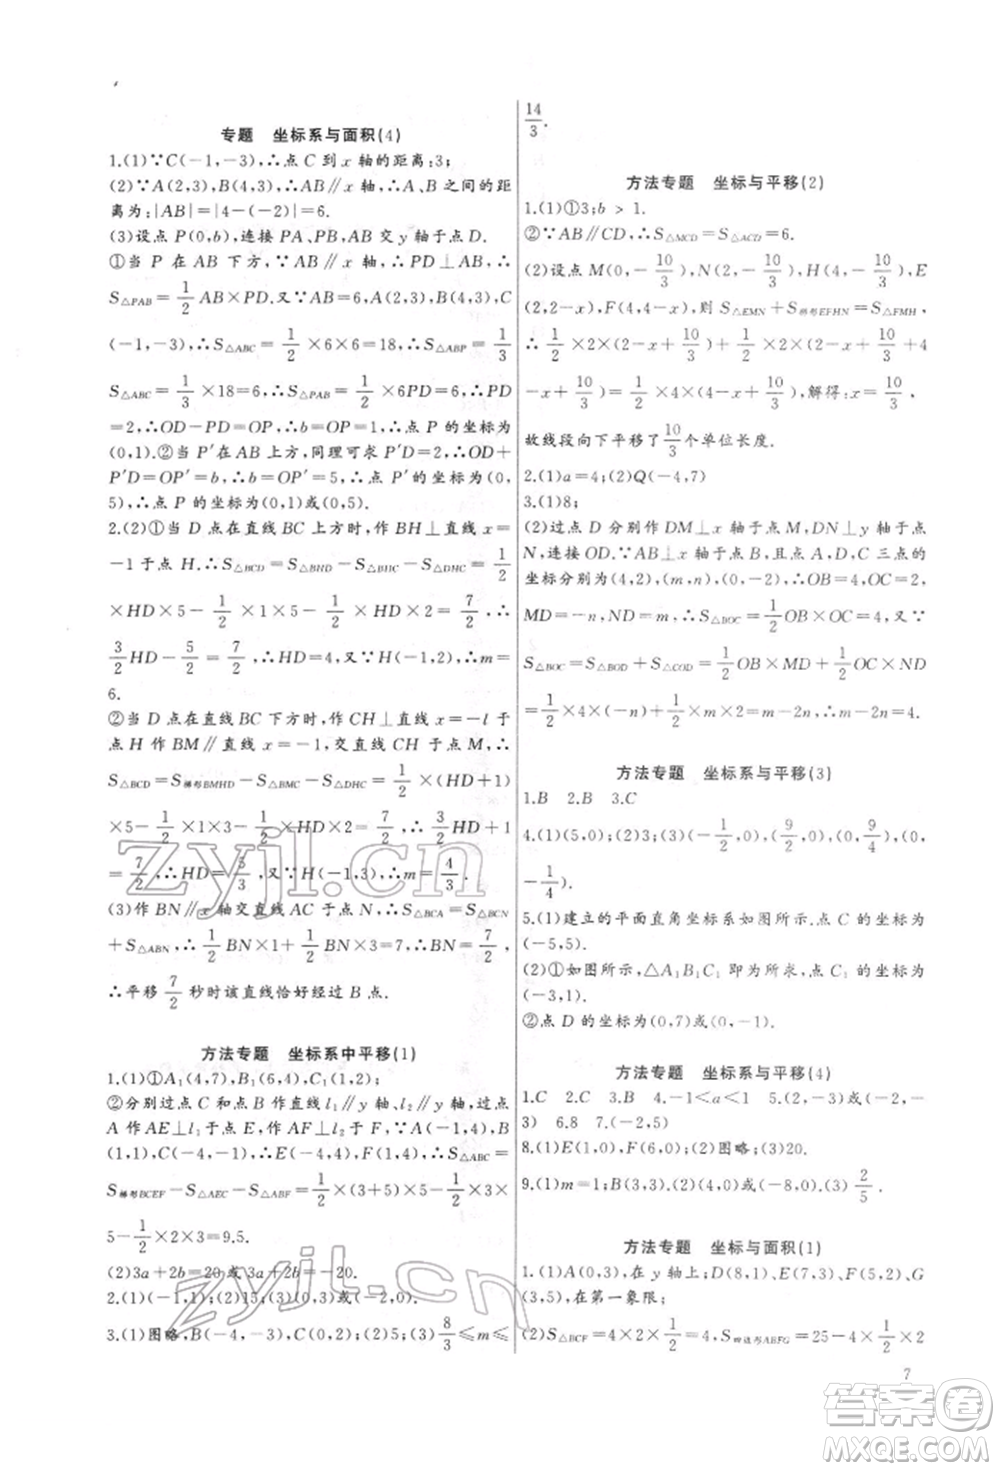 专题　坐标系与面积(4)
1.(1)∵C(-1,-3),∴点 C 到 x 轴的距离:3;
(2)∵A(2,3),B(4,3),∴AB∥x 轴,∴A、B 之间的距
离为:|AB|=|4-(-2)|=6.
(3)设点 P(0,b),连接 PA、PB,AB 交 y 轴于点 D.
①当 P 在 AB 下方,∵AB∥x 轴,∴PD⊥AB,∴
S△PAB=1/2 AB×PD.又∵AB=6,A(2,3),B(4,3),C
(-1,-3),∴S△ABC=1/2×6×6=18,∴S△ABP=1/3
S△ABC=1/3×18=6,∴S△PAB=1/2×6PD=6,∴PD
=2,∴OD-PD=OP,∴b=OP=1,∴点 P 的坐标为
(0,1).②当 P′在 AB 上方,同理可求 P′D=2,∴OD+
P′D=OP′=5,∴b=OP′=5,∴点 P′的坐标为(0,
5),∴点 P 的坐标为(0,1)或(0,5).
2.(2)①当 D 点在直线 BC 上方时,作 BH⊥直线 x=
-1 于点 H.∵S△BCD=S△BHD-S△DHC=7/2,∴1/2
×HD×5-1/2×1×5-1/2×HD×2=7/2,∴
3/2 HD-5/2=7/2,∴HD=4,又∵H(-1,2),∴m=
6.
②当 D 点在直线 BC 下方时,作 CH⊥直线 x=-l 于
点 H 作 BM∥直线 x=-1,交直线 CH 于点 M,∴
S△BCD=S梯形BMHD-S△BMC-S△DHC=1/2×(HD+1)
×5-1/2×1×3-1/2×HD×2=7/2,∴3/2 HD+1
=7/2,∴HD=5/3,又∵H(-1,-3),∴m=-4/3.
(3)作 BN∥x 轴交直线 AC 于点 N,∴S△BCA=S△BCN
+S△ABN,∴1/2 BN×1+1/2 BN×3=7,∴BN=7/2,
∴平移7/2秒时该直线恰好经过 B 点.
方法专题　坐标系中平移(1)
1.(1)①A₁(4,7),B₁(6,4),C₁(1,2);
②分别过点 C 和点 B 作直线 l₁∥y 轴,l₂∥y 轴,过点
A 作 AE⊥l₁ 于点 E,作 AF⊥l₂ 于点 F,∵A(-1,4),B
(1,1),C(-4,-1),∴E(-4,4),F(1,4),∴S△ABC=
S梯形BCEF-S△AEC-S△ABF=1/2×(3+5)×5-1/2×3×
5-1/2×2×3=9.5.
(2)3a+2b=20或 3a+2b=-20.
2.(1)(-1,1);(2)15,(3)(4,0)或(-2,0).
3.(1)图略,B(-4,-3),C(0,2);(2)5;(3)8/3≤m≤
14/3.
方法专题　坐标与平移(2)
1.(1)①3;b > 1.
②∵AB∥CD,∴S△MCD=S△ACD=6.
(2)设点 M(0,-10/3),N(2,-10/3),H(4,-10/3),E
(2,2-x),F(4,4-x),则 S△EMN+S梯形EFHN=S△FMH,
∴1/2×2×(2-x+10/3)+1/2×2×(2-x+10/3+4
-x+10/3)=1/2×4×(4-x+10/3),解得:x=10/3.
故线段向下平移了10/3个单位长度.
2.(1)a=4;(2)Q(-4,7)
3.(1)8;
(2)过点 D 分别作 DM⊥x 轴于点 M,DN⊥y 轴于点
N,连接 OD.∵AB⊥x 轴于点 B,且点 A,D,C 三点的
坐标分别为(4,2),(m,n),(0,-2),∴OB=4,OC=2,
MD=-n,ND=m,∴S△BOC=1/2 OB×OC=4,又∵
S△BOC=S△BOD+S△COD=1/2 OB×MD+1/2 OC×ND
=1/2×4×(-n)+1/2×m×2=m-2n,∴m-2n=4.
方法专题　坐标系与平移(3)
1.B　2.B　3.C
4.(1)(5,0);(2)3;(3)(-1/2,0),(9/2,0),(0,9/4),(0,
-1/4).
5.(1)建立的平面直角坐标系如图所示.点 C 的坐标为
(-5,5).
(2)①如图所示,△A₁B₁C₁ 即为所求,点 C₁ 的坐标为
(-3,1).
②点 D 的坐标为(0,7)或(0,-1).
方法专题　坐标系与平移(4)
1.C　2.A　3.B　4.-1<a<1　5.(-2,2)或(-2,-
3)　6.8　7.(-2,5)
8.(1)E(1,0),F(6,0);(2)图略;(3)20.
9.(1)m=1;B(3,3).(2)(4,0)或(-8,0).(3)2/5.
方法专题　坐标与面积(1)
1.(1)A(0,3),在 y 轴上;D(8,1),E(7,3),F(5,2),G
(3,5),在第一象限;
(2)S△BCF=5×2×1/2=4×1/2=2;S四边形ABFG=25-4×1/2×2
7
zyjl.cn
zyjl.cn
答案卷
MXQE.COM